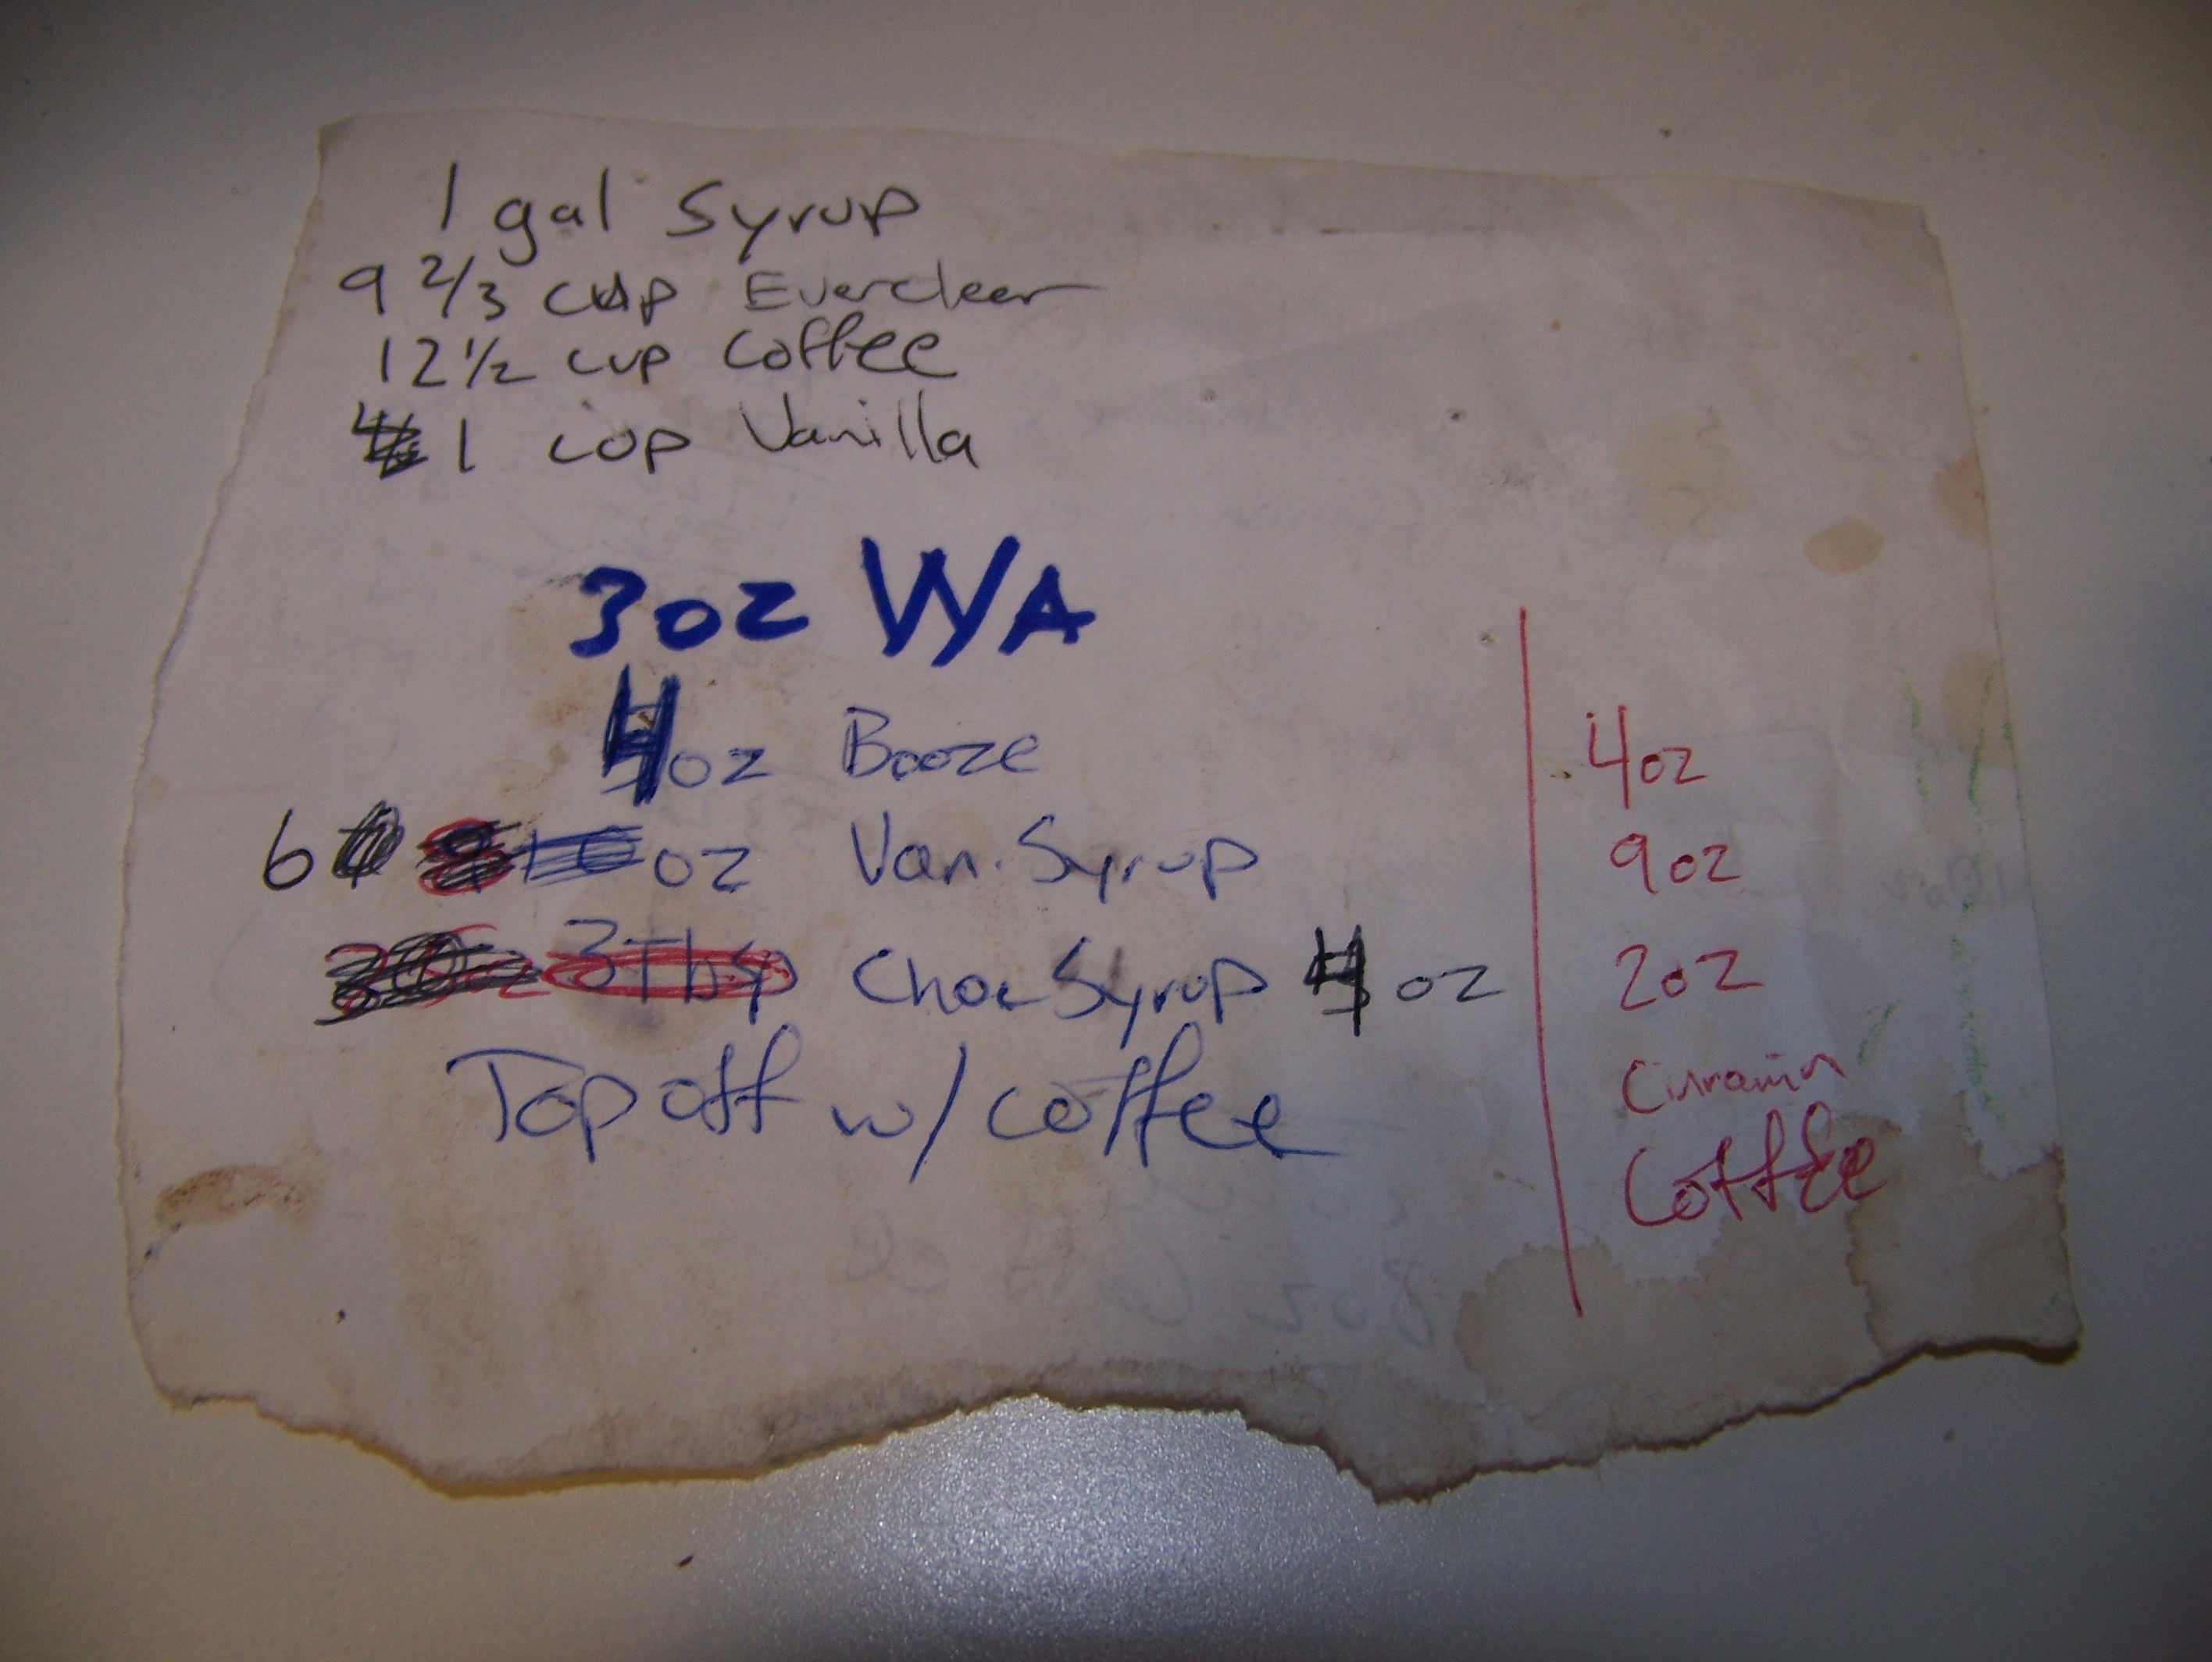 1 gal Syrup
9 2/3 cup Everclear
12 1/2 cup Coffee
1 cup Vanilla
3oz WA
4oz Booze
6 oz Van. Syrup
3Tbsp Choc Syrup 4 oz
Top off w/ coffee
4oz
9oz
2oz
Cinnamin
Coffee